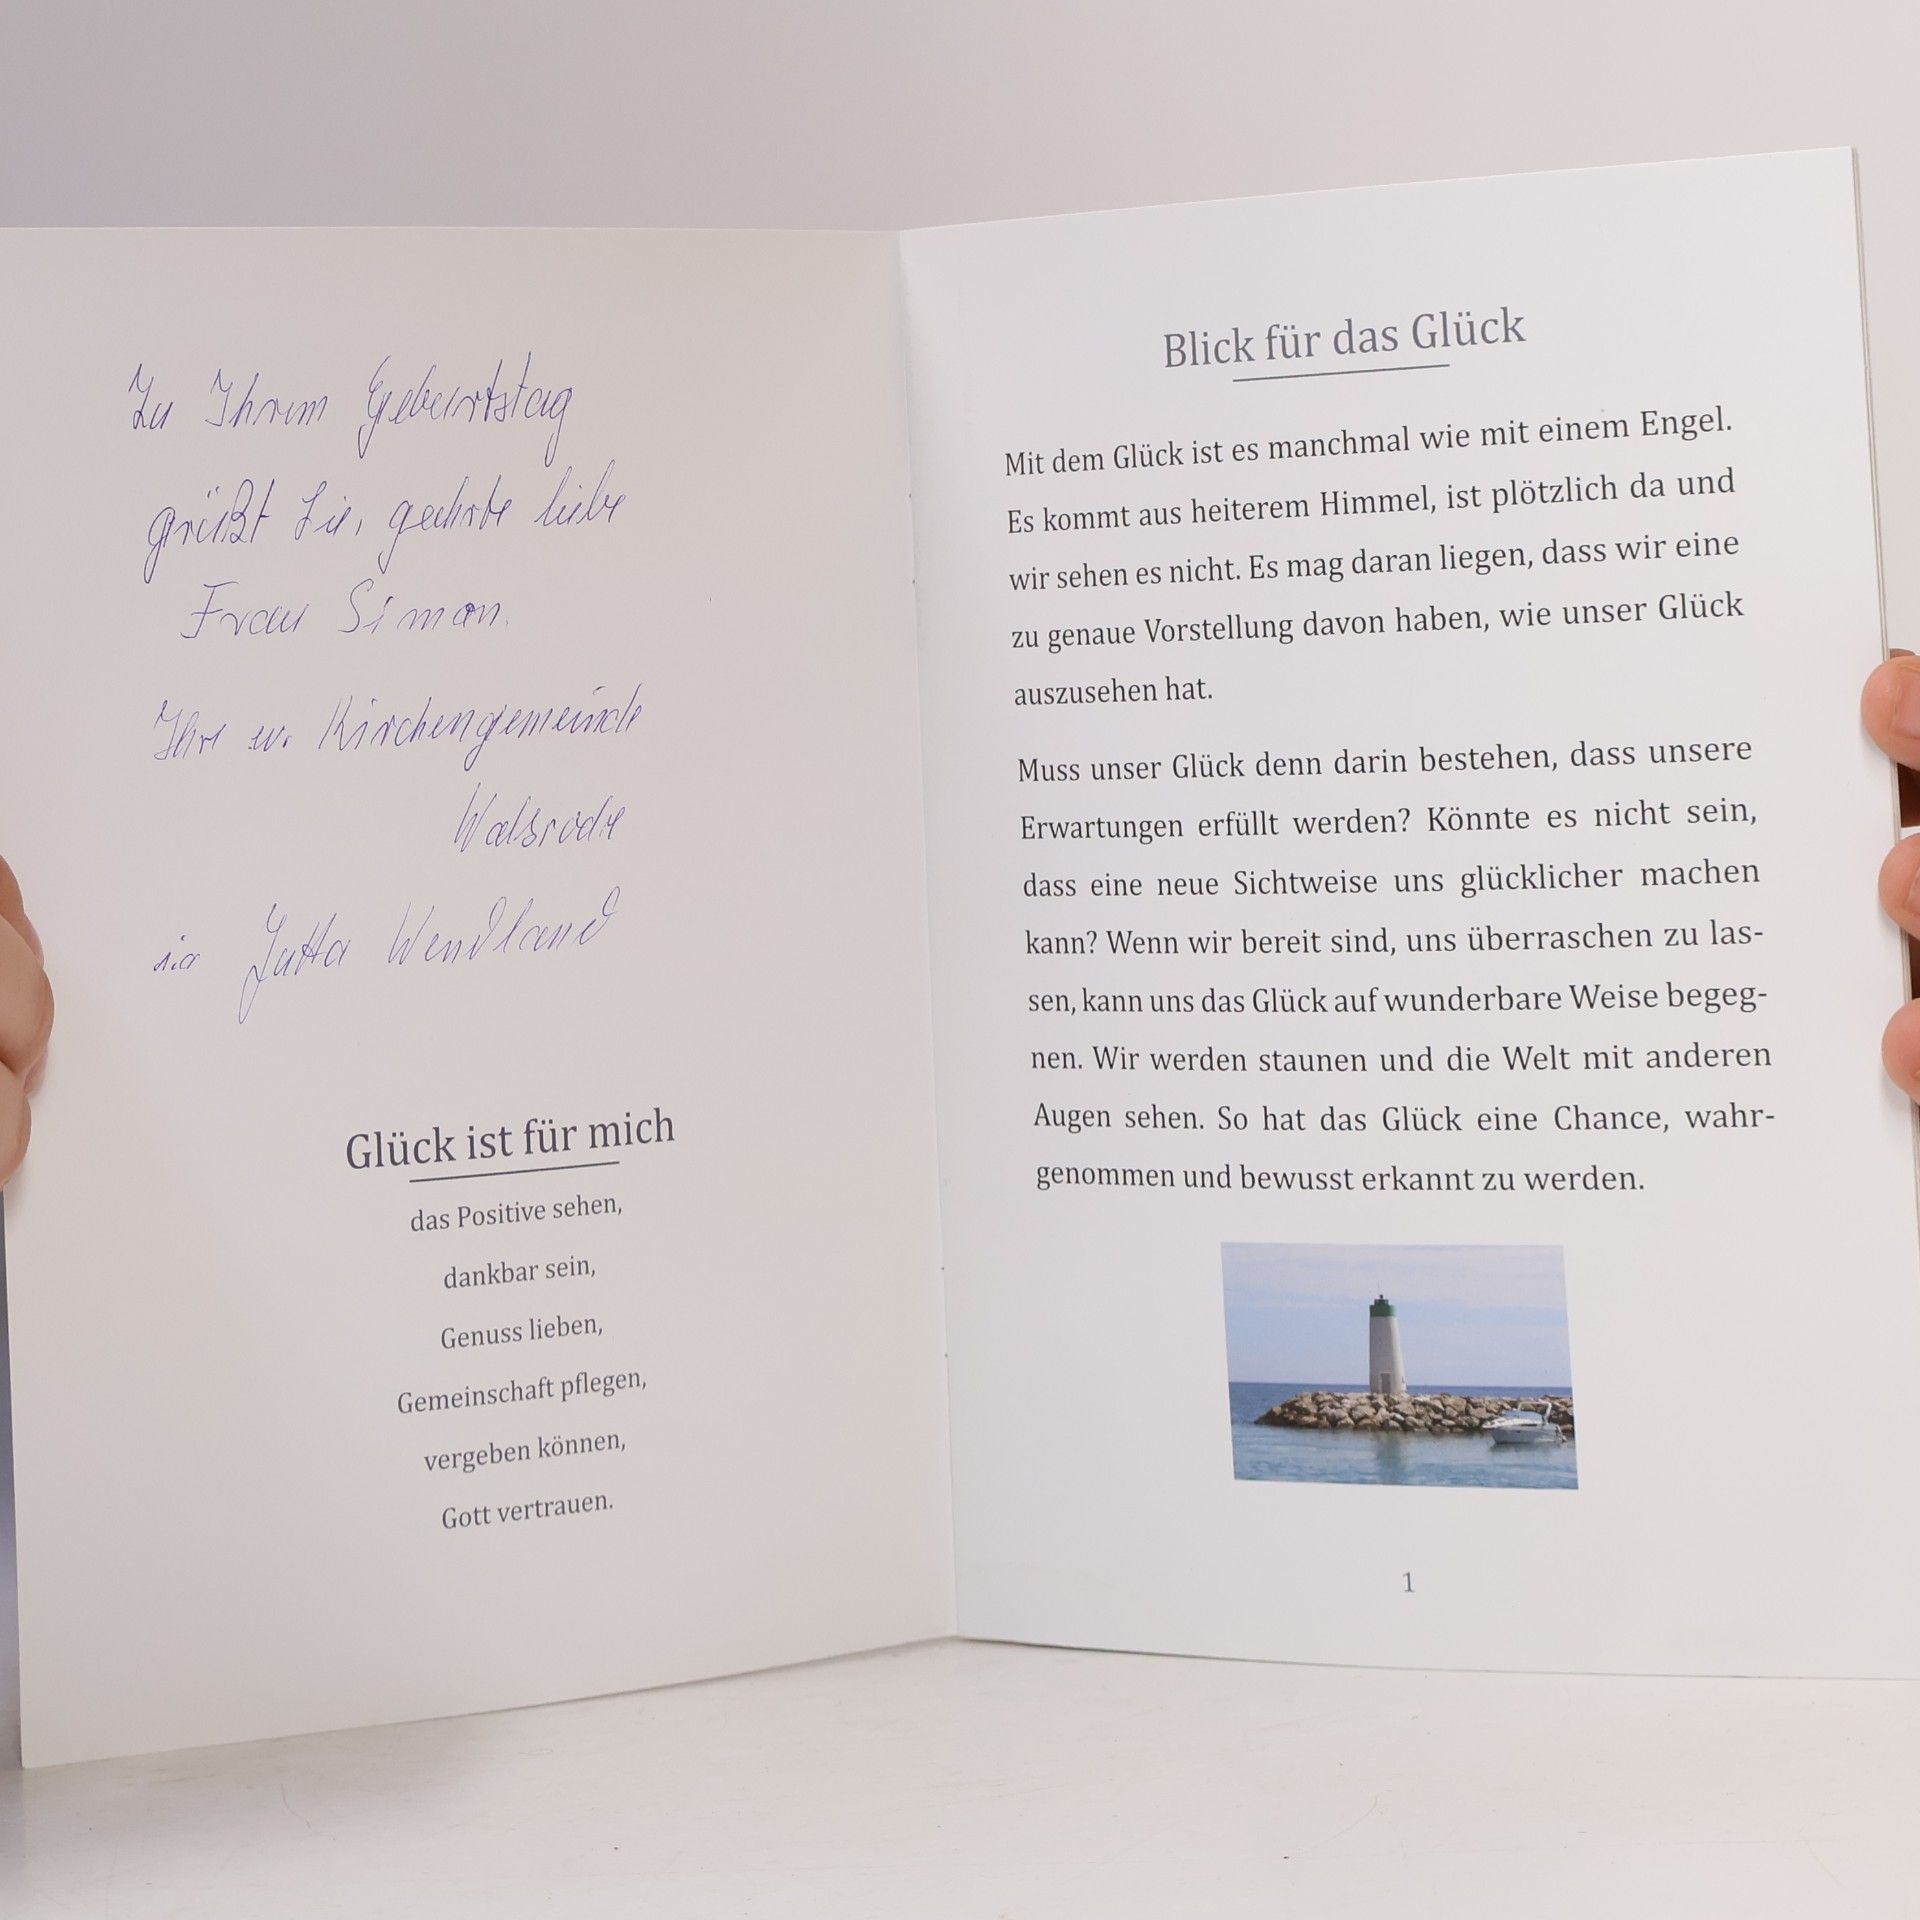 Zu Ihrem Geburtstag
grüßt Sie, geehrte liebe
Frau Simon.
Ihre ev. Kirchengemeinde
Walsrode
Jutta Wendland
Glück ist für mich
das Positive sehen,
dankbar sein,
Genuss lieben,
Gemeinschaft pflegen,
vergeben können,
Gott vertrauen.
Blick für das Glück
Mit dem Glück ist es manchmal wie mit einem Engel.
Es kommt aus heiterem Himmel, ist plötzlich da und
wir sehen es nicht. Es mag daran liegen, dass wir eine
zu genaue Vorstellung davon haben, wie unser Glück
auszusehen hat.
Muss unser Glück denn darin bestehen, dass unsere
Erwartungen erfüllt werden? Könnte es nicht sein,
dass eine neue Sichtweise uns glücklicher machen
kann? Wenn wir bereit sind, uns überraschen zu las-
sen, kann uns das Glück auf wunderbare Weise begeg-
nen. Wir werden staunen und die Welt mit anderen
Augen sehen. So hat das Glück eine Chance, wahr-
genommen und bewusst erkannt zu werden.
1